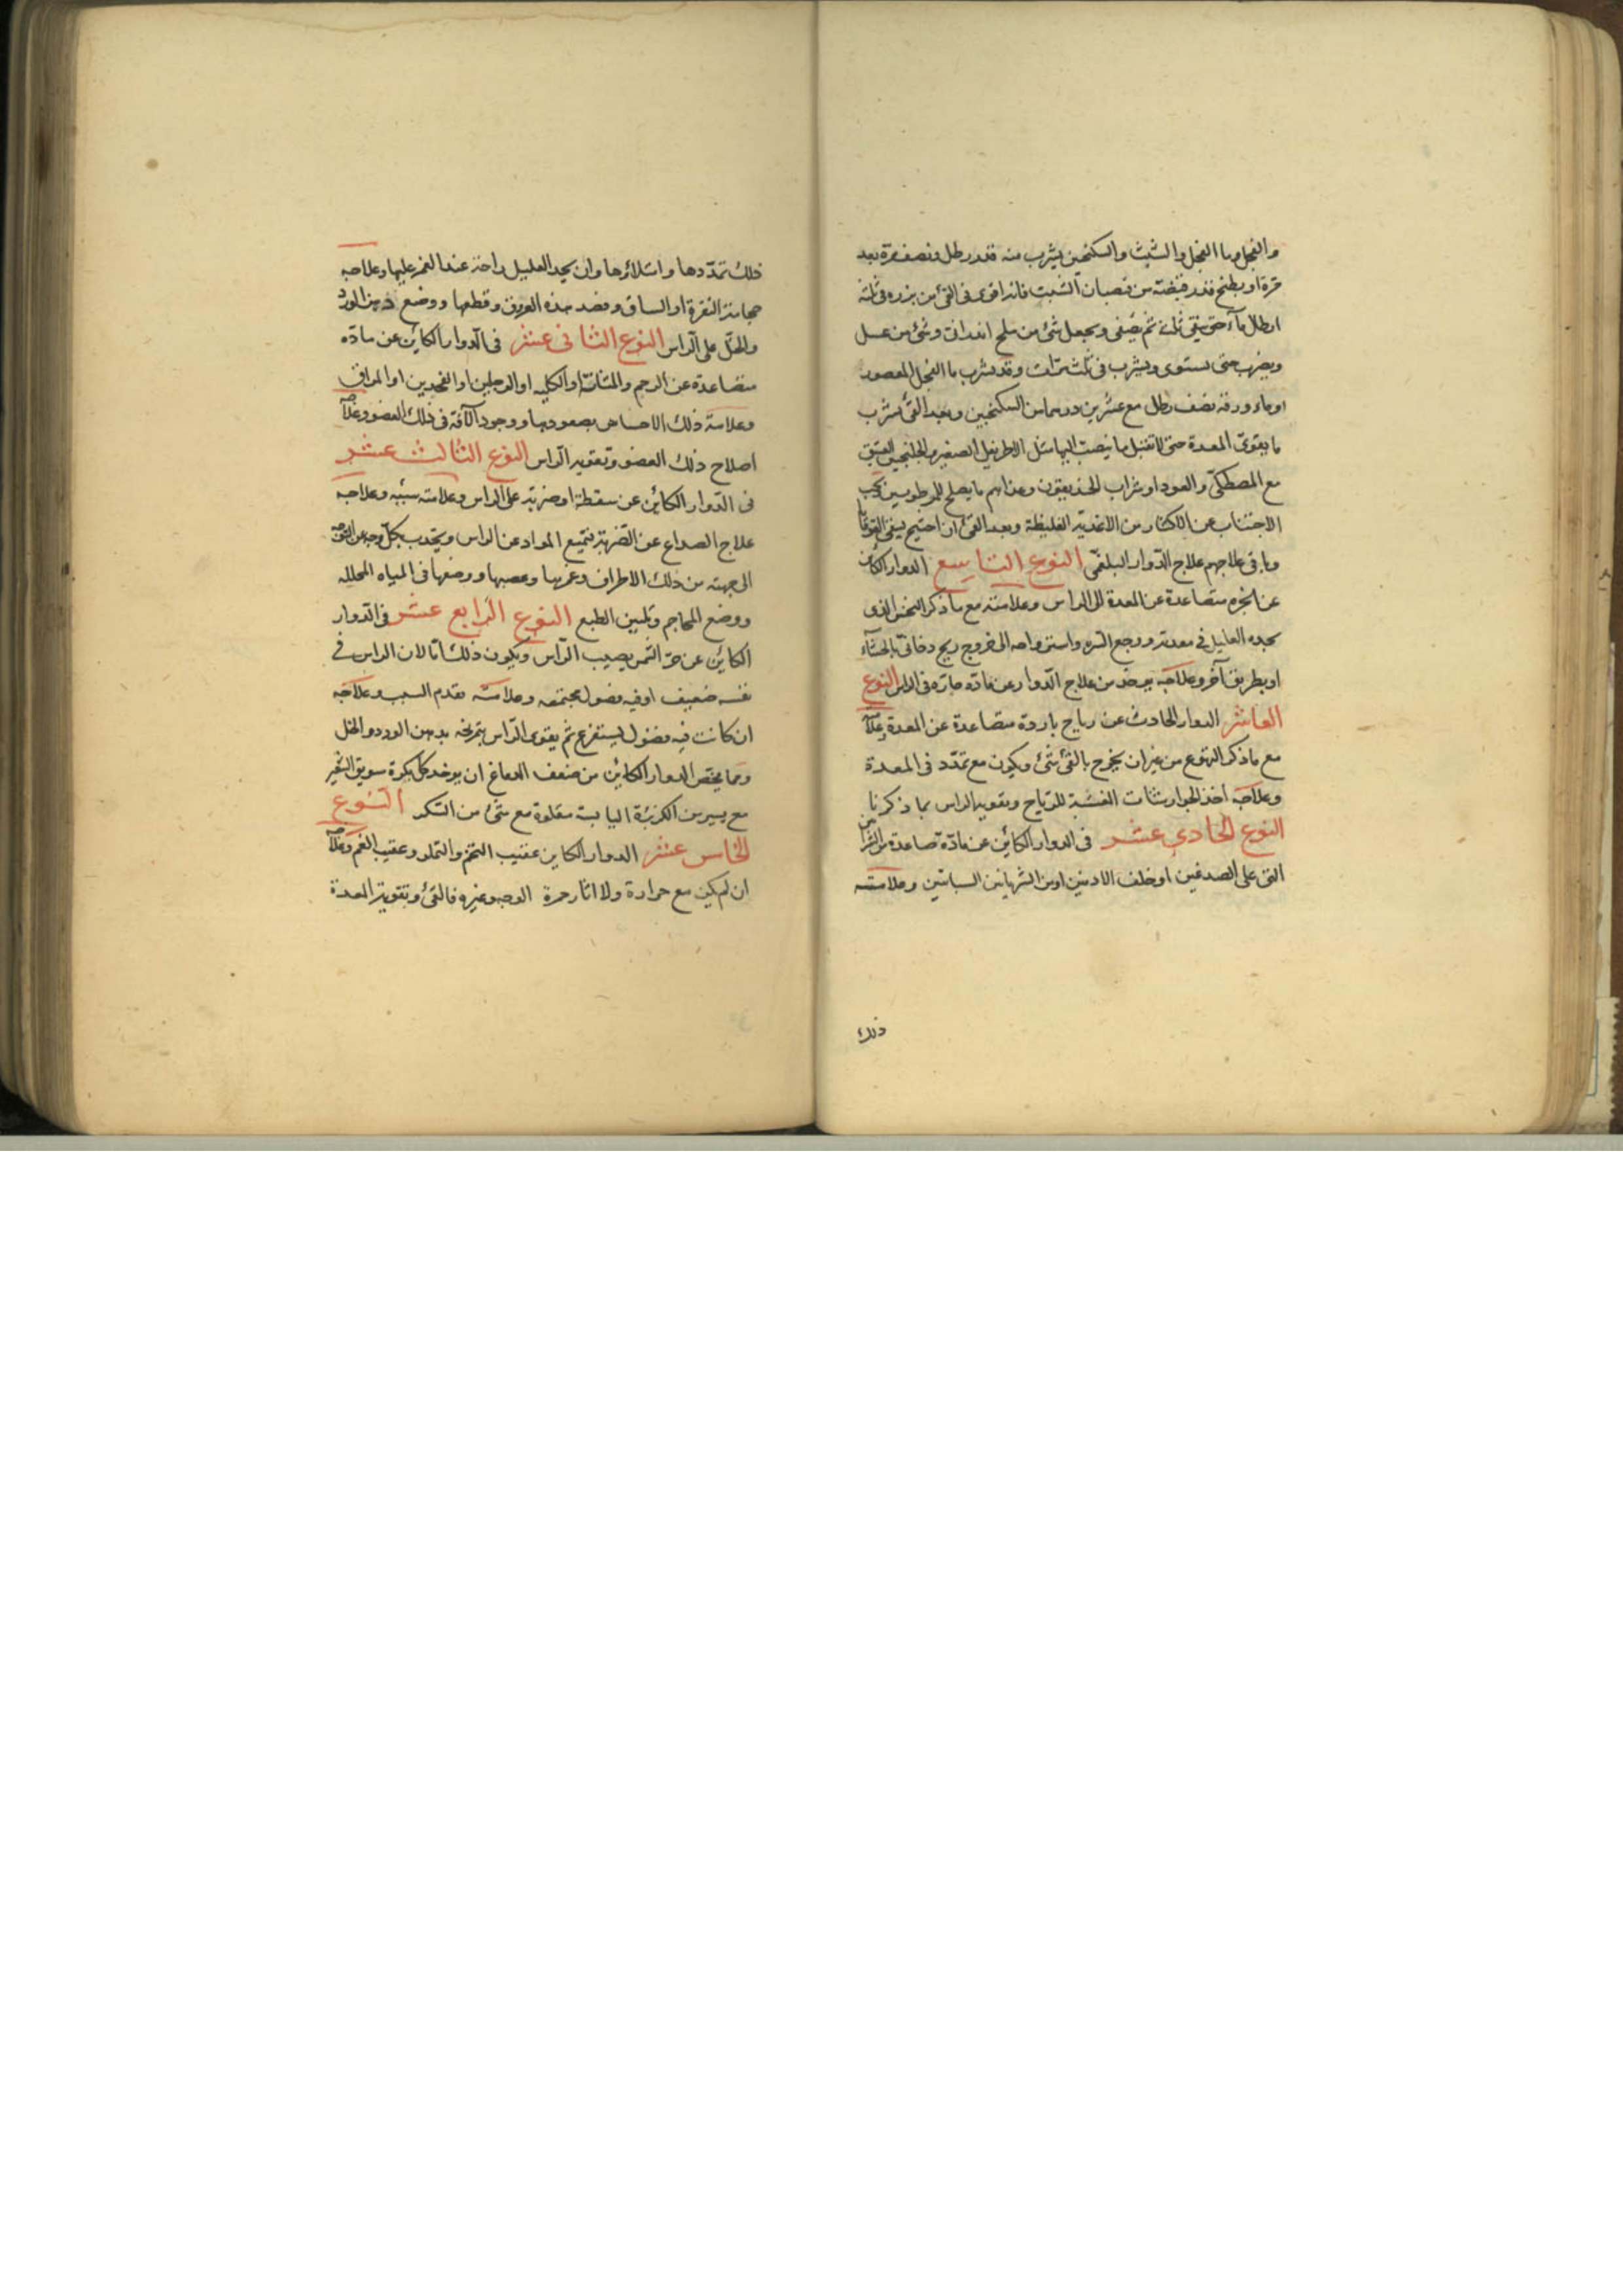 والفجل وما الفجل والشبث والسكنجبين يشرب منه قدر رطل ونصف مرة بعد
مرة او يطبخ قدر قبضة من قضبان الشبث فانه اقوى فى القئ من بزره فى ثلثة
ارطال مآء حتى يبقى ثلث ثم يصفى ويجعل شئ من ملح اندرانى وشئ من عسل
ويضرب حتى يستوى ويشرب فى ثلث مرات وقد يشرب ما الفجل المعصور
او ماء ورقه نصف رطل مع عشرين درهما من السكنجبين وبعد القئ يشرب
ما يقوى المعدة حتى لا تقبل ما ينصب اليها مثل الاطريفل الصغير والجلنجبين العتيق
مع المصطكى والعود او شراب الخنديقون وغذاهم ما يصلح للمرطوبين ويجب
الاجتناب عن الاكثار من الاغذية الغليظة وبعد القئ ان احتيج يسقى القوقايا
وباقى علاجهم علاج الدوار البلغمى النوع التاسع الدوار الكائن
عن ابخره متصاعدة عن المعدة الى الراس وعلامته مع ما ذكر النخس الذى
يجده العليل فى معدته ووجع السره واسترواحه الى خروج ريح دخانى بالجشآء
او بطريق آخر وعلاجه يوخذ من علاج الدوار عن مادّه حارّه فى الراس النوع
العاشر الدوار الحادث عن رياح باردة متصاعدة عن المعدة وعلامته
مع ما ذكر التهوع من غير ان يخرج بالقئ شئ ويكون مع تمدّد فى المعدة
وعلاجه اخذ الجوارشنات المفشّية للرياح وتقوية الراس بما ذكرنا
النوع الحادي عشر فى الدوار الكائن عن مادّة تصاعدة من الشرائين
التى على الصدغين او خلف الاذنين او من الشريانين السباتين وعلامته
ذلك
ذلك تمدّدها وامتلاؤها وان يجد العليل راحة عند الغمز عليها وعلاجه
حجامة النقرة او الساق وفصد هذه العروق وقطعها ووضع دهن الورد
والخلّ على الراس النوع الثانى عشر فى الدوار الكائن عن مادّه
متصاعدة عن الرحم والمثانة او الكليه او الرجلين او الفخدين او المراق
وعلامة ذلك الاحساس بصعودها ووجود الآفة فى ذلك العضو وعلاجه
اصلاح ذلك العضو وتقوية الراس النوع الثالث عشر
فى الدوار الكائن عن سقطة او ضربة على الراس وعلامته سببه وعلاجه
علاج الصداع عن الضربة بتمييع المواد عن الراس ويجذب بكل وجه عن
الى جهته من ذلك الاطراف وغمزها وعصبها ووضعها فى المياه المحلله
ووضع المحاجم وتليين الطبع النوع الرابع عشر فى الدوار
الكائن عن حرّ الشمس يصيب الراس ويكون ذلك امّا لان الراس فى
نفسه ضعيف او فيه فضول مجتمعه وعلامته تقدم السبب وعلاجه
ان كانت فيه فضول ليستفرغ ثم يقوى الراس بتمريخه بدهن الورد والخل
ومما يختص الدوار الكائن من ضعف الدماغ ان يوخذ كل بكرة سويق الشعير
مع يسير من الكزبرة اليابسة مقلوة مع شئ من السكر النوع
الخامس عشر الدوار الكاين عقيب التخم والتملى وعقيب الغم وعلاجه
ان لم يكن مع حرارة ولا اثار حمرة الوجه وغيره فالقئ وتقوية المعدة